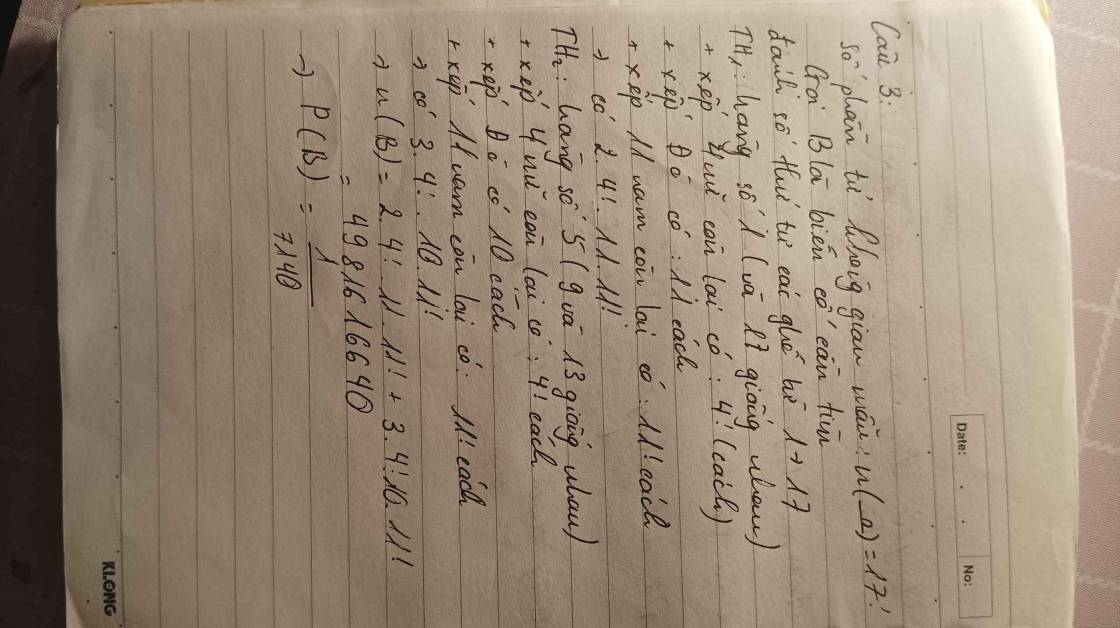 Date: . .
No:
Câu 3:
số phần tử không gian mẫu: n(Ω) = 17!
Gọi B là biến cố cần tìm
đánh số thứ tự cái ghế từ 1 → 17
TH₁: hàng số 1 (và 17 giống nhau)
+ xếp 4 nữ còn lại có: 4! (cách)
+ xếp Đô có: 11 cách
+ xếp 11 nam còn lại có: 11! cách
→ có 2.4!.11.11!
TH₂: hàng số 5 (9 và 13 giống nhau)
+ xếp 4 nữ còn lại có: 4! cách
+ xếp Đô có 10 cách
+ xếp 11 nam còn lại có: 11! cách
→ có 3.4!.10.11!
→ n(B) = 2.4!.11.11! + 3.4!.10.11!
= 4981616640
→ P(B) = 1/7140
KLONG